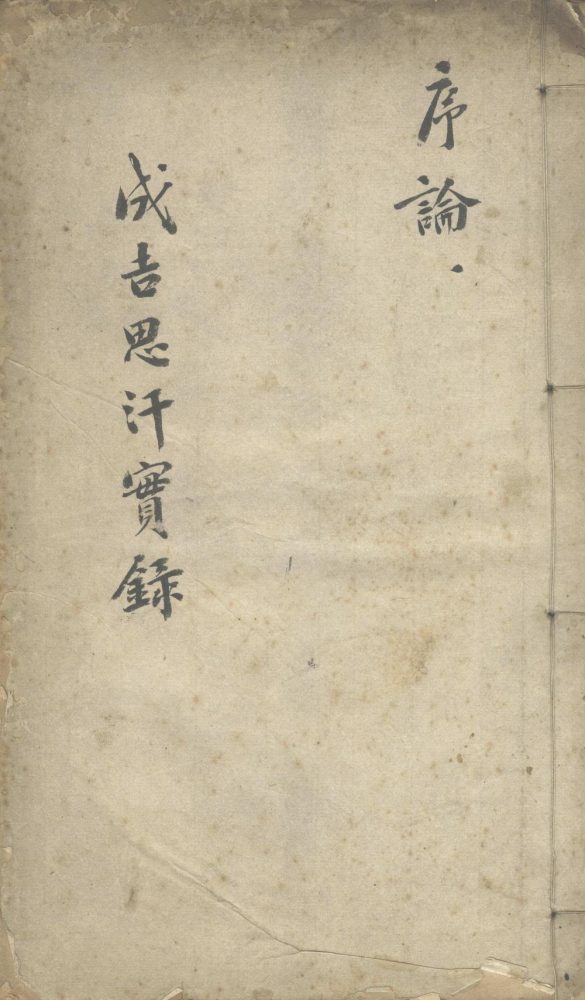 序論.
成吉思汗實録